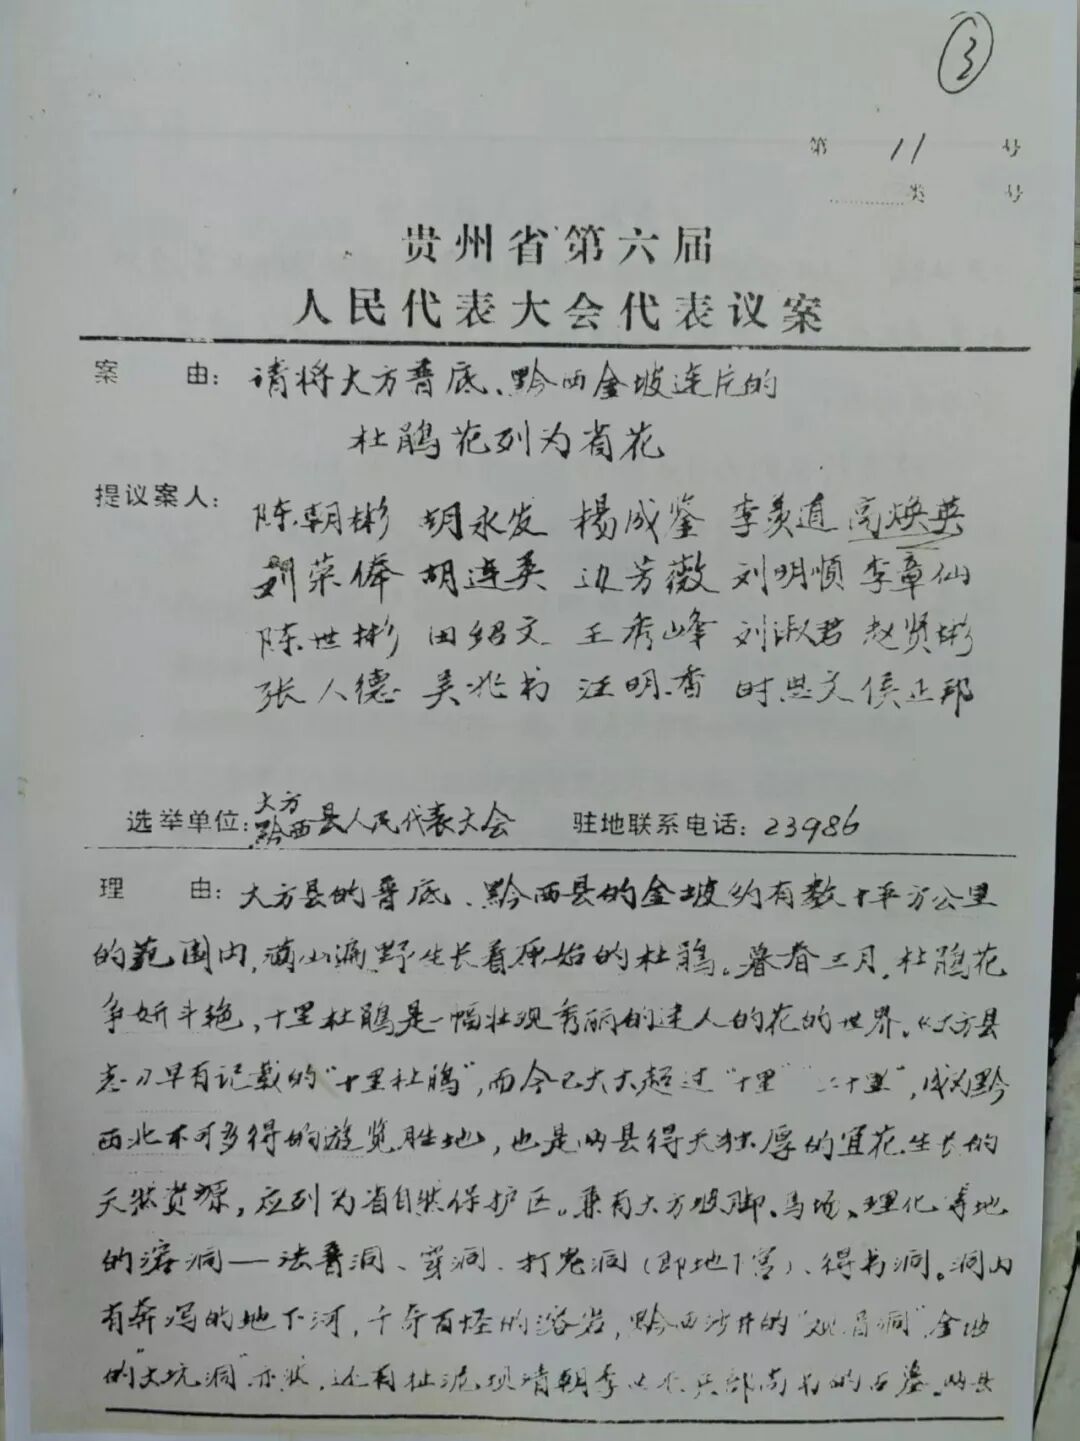 ③
第 11 号
类 号
贵州省第六届
人民代表大会代表议案
案 由：请将大方普底、黔西金坡连片的
杜鹃花列为省花
提议案人：陈朝彬 胡永发 楊成鉴 李美道 高焕英
刘荣俸 胡连英 边芳薇 刘明順 李章仙
陈世彬 田绍文 王秀峰 刘淑君 赵贤彬
张人德 吴兆书 汪明香 时思文 侯正邦
选举单位：大方黔西县人民代表大会 驻地联系电话：23986
理 由：大方县的普底、黔西县的金坡约有数十平方公里
的范围内，满山遍野生长着原始的杜鹃。暮春三月，杜鹃花
争妍斗艳，十里杜鹃是一幅壮观秀丽的迷人的花的世界。《大方县
志》早有记载的“十里杜鹃”，而今已大大超过“十里”“二十里”，成为黔
西北不可多得的游览胜地，也是两县得天独厚的宜花生长的
天然资源，应列为省自然保护区。兼有大方坡脚、马场、理化等地
的溶洞——法普洞、穿洞、打鬼洞（即地下宫）、得书洞。洞内
有奔泻的地下河，千奇百怪的溶岩，黔西沙井的“观音洞”金坡
的“大坑洞”亦然，还有杜泥坝清朝李 兵部尚书的石墓。两县